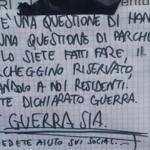 È UNA QUESTIONE DI HAN
UNA QUESTIONE DI PARCHE
LO SIETE FATTI FARE, IL
CHEGGINO RISERVATO,
NDOLO A NOI RESIDENTI.
TE DICHIARATO GUERRA.
GUERRA SIA.
EDETE AIUTO SUI SOCIAL...